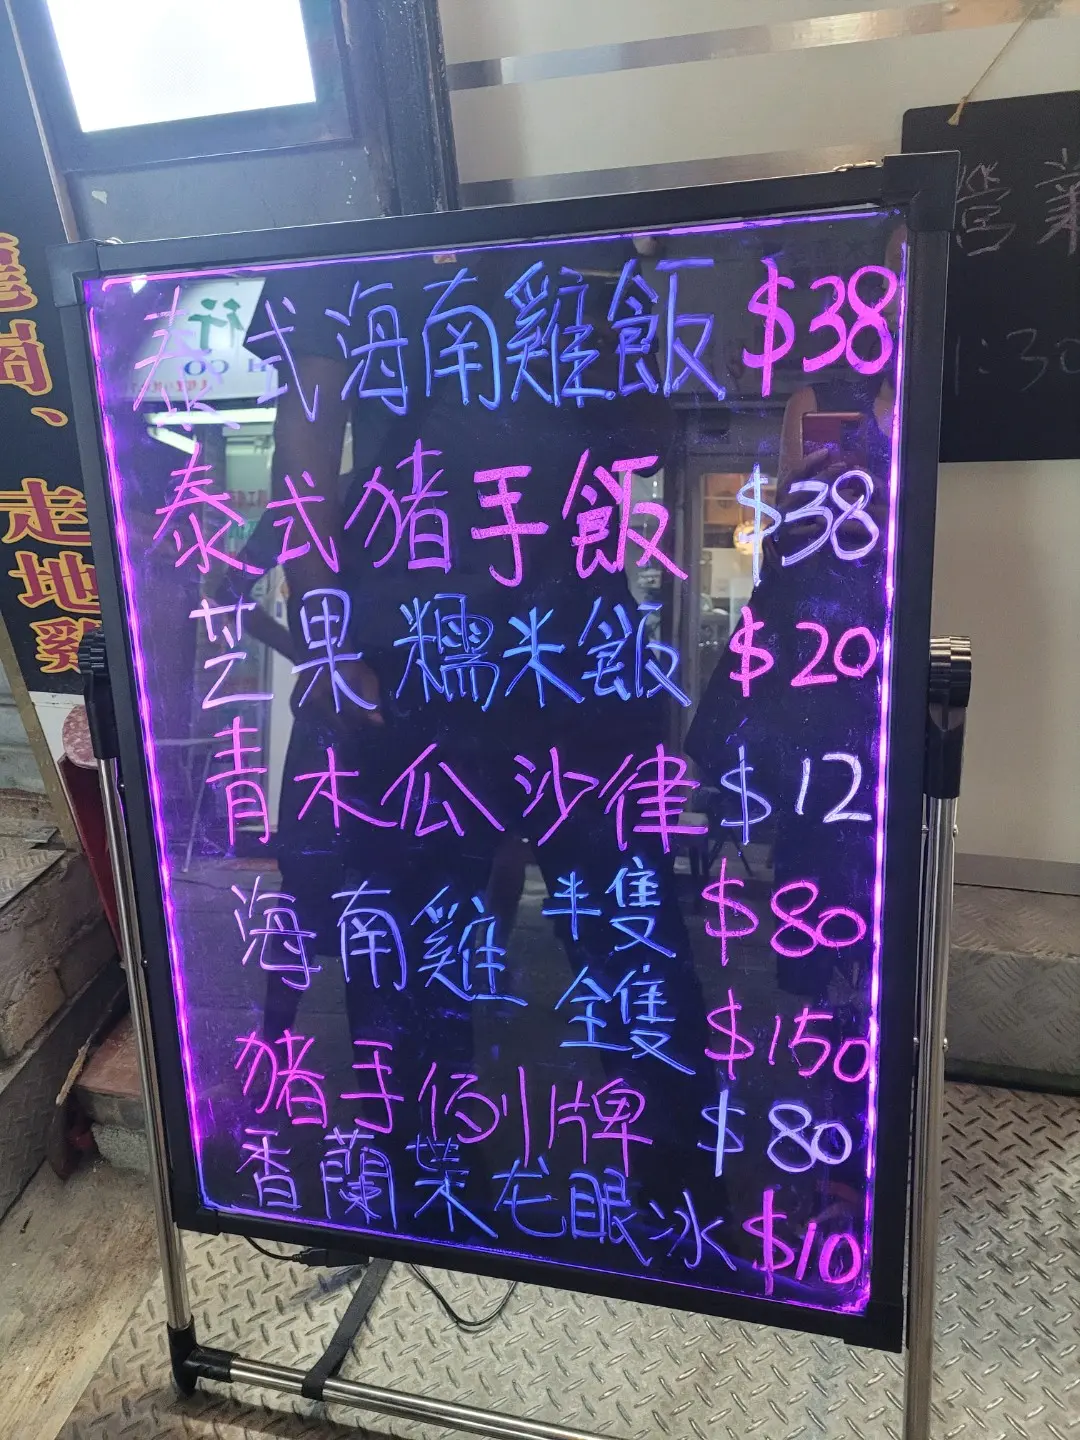 泰式海南雞飯 $38
泰式猪手飯 $38
芒果糯米飯 $20
青木瓜沙律 $12
海南雞 半隻 $80
全隻 $150
猪手例牌 $80
香蘭葉龙眼冰 $10
走地雞
行
CO
營業
1:30